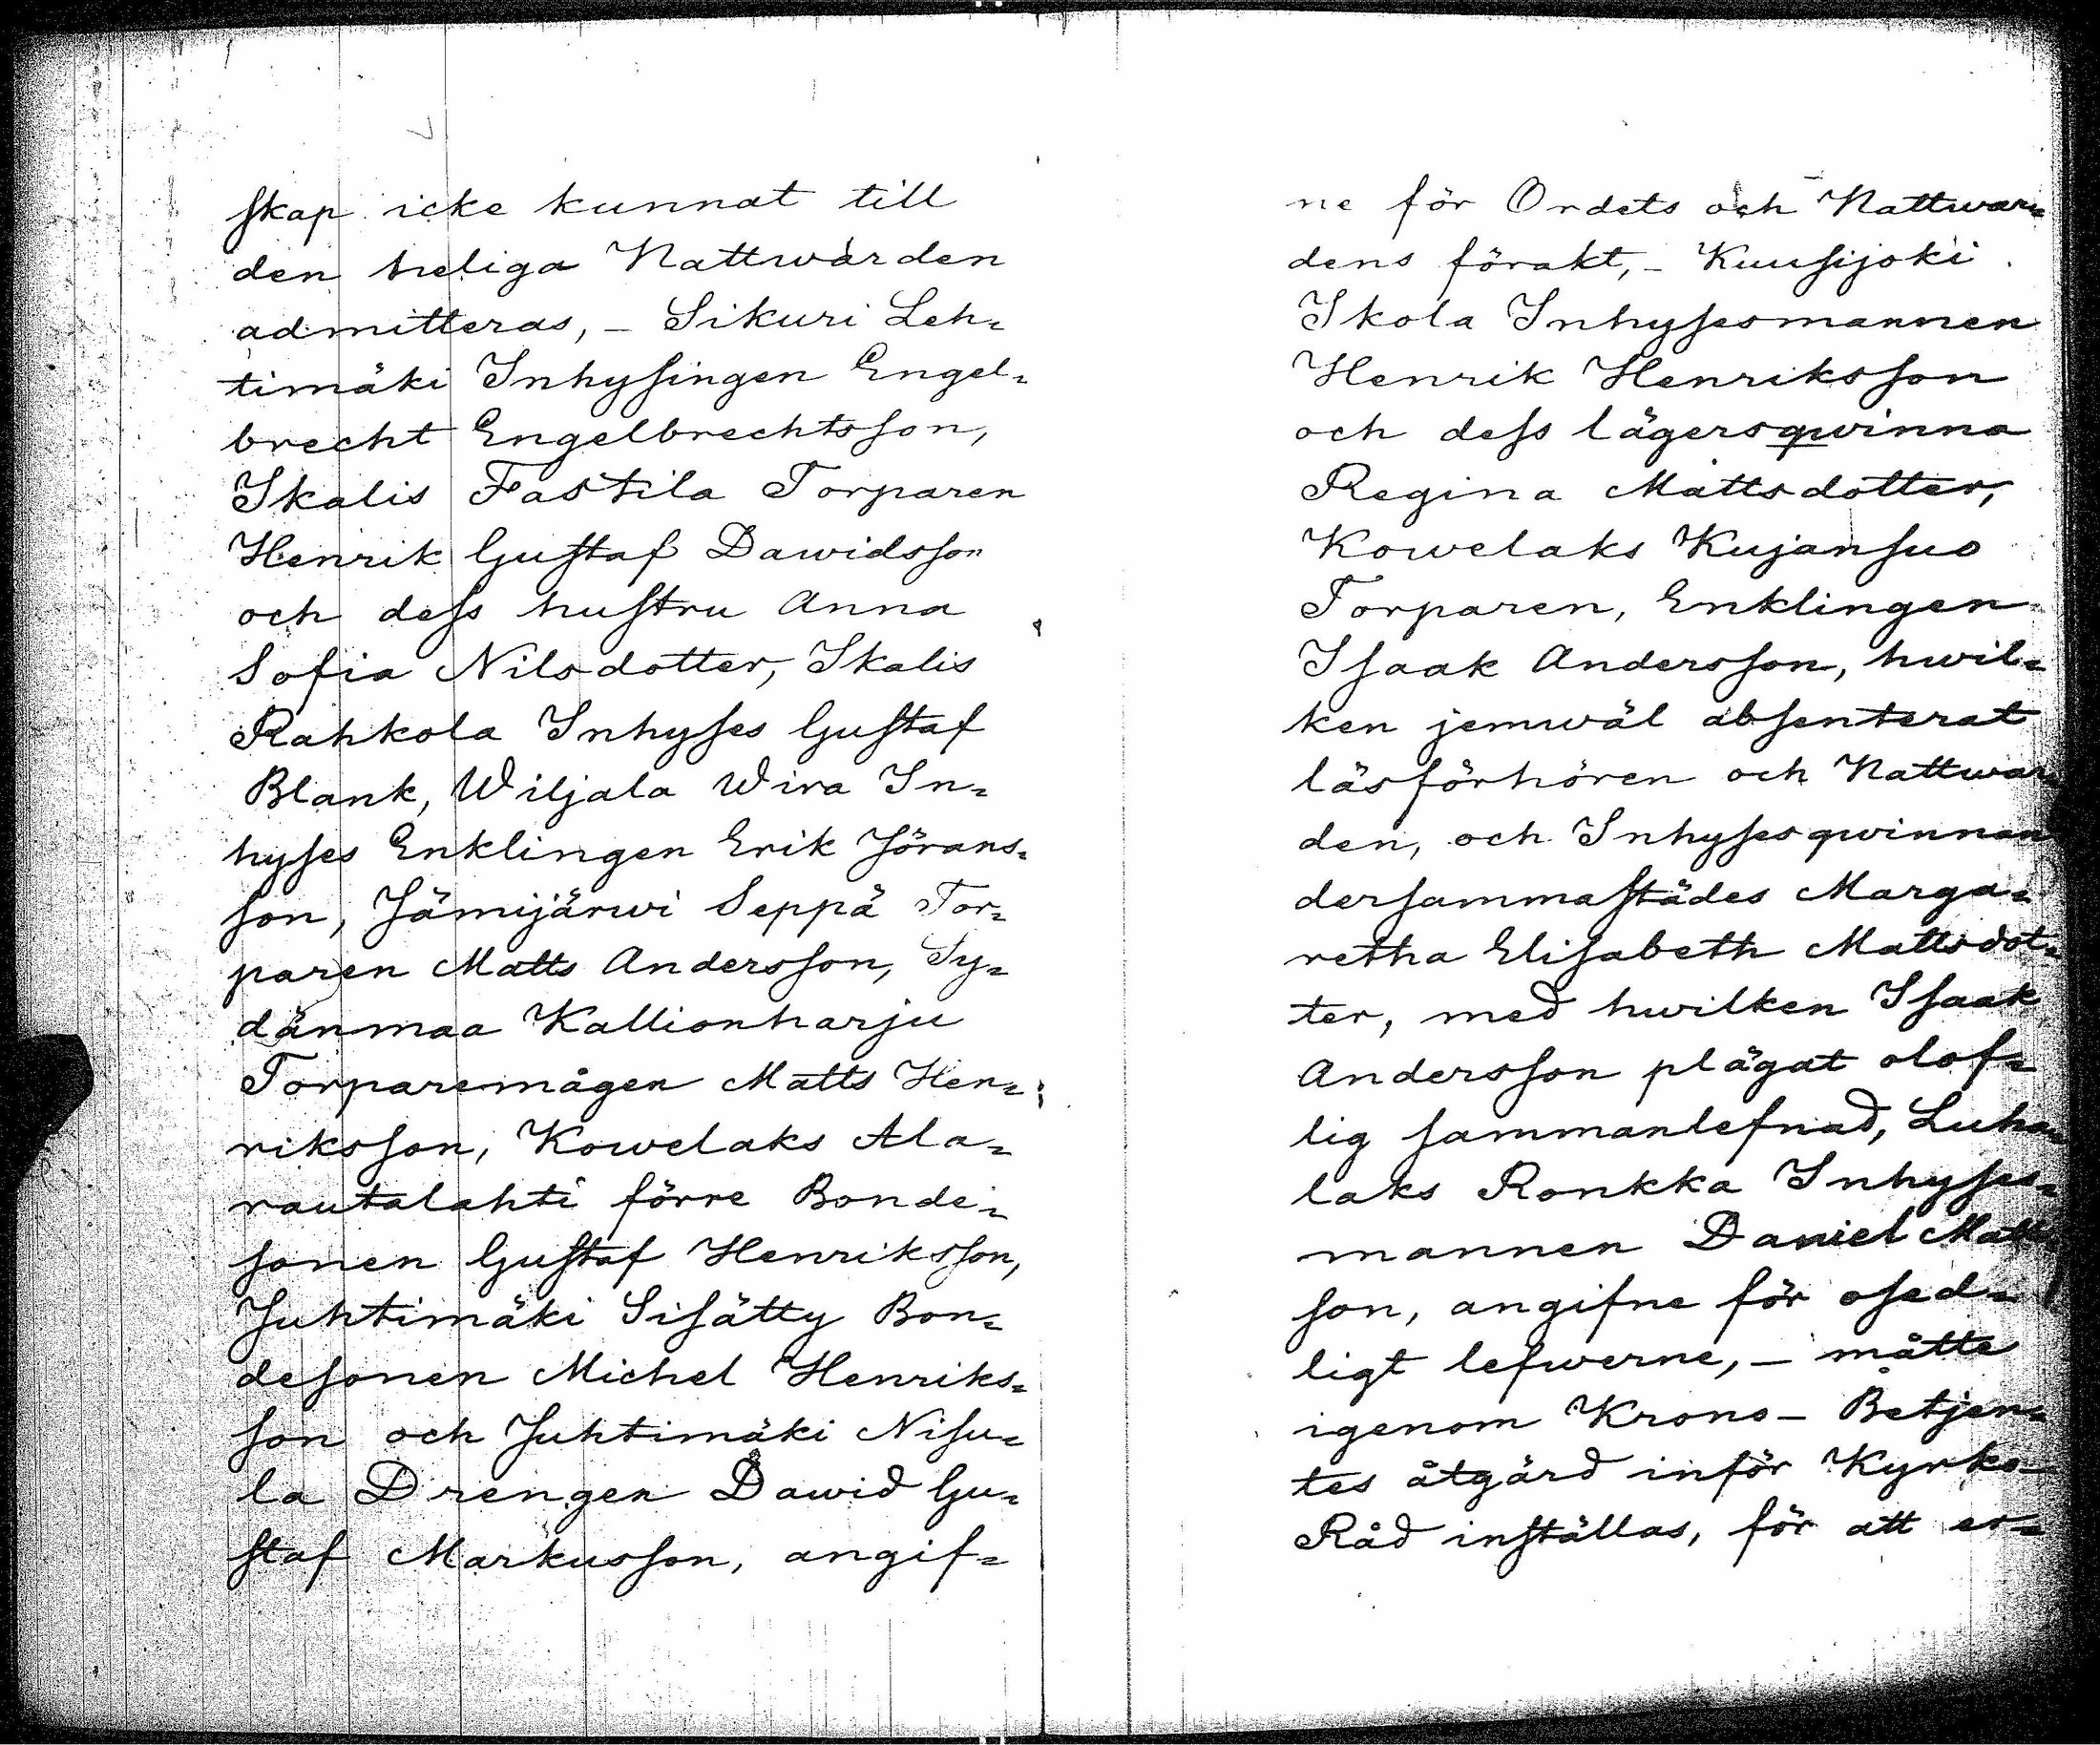 skap icke kunnat till
den heliga Nattwarden
admitteras, – Sikuri Leh=
timäki Inhysingen Engel=
brecht Engelbrechtsson,
Skalis Fastila Torparen
Henrik Gustaf Dawidsson
och dess hustru Anna
Sofia Nilsdotter, Skalis
Rahkola Inhyses Gustaf
Blank, Wiljala Wira In=
hyses Enklingen Erik Jörans=
son, Jämijärwi Seppä Tor=
paren Matts Andersson, Sy=
dänmaa Kallionharju
Torparemågen Matts Hen=
riksson, Kowelaks Ala=
rautalahti förre Bonde=
sonen Gustaf Henriksson,
Juhtimäki Sisätty Bon=
desonen Michel Henriks=
son och Juhtimäki Nisu=
la Drengen Dawid Gu=
staf Markusson, angif=
ne för Ordets och Nattwar=
dens förakt, – Kuusijoki
Skola Inhysesmannen
Henrik Henriksson
och dess lägersqwinna
Regina Mattsdotter,
Kowelaks Kujansuo
Torparen, Enklingen
Isaak Andersson, hwil=
ken jemwäl absenterat
läsförhören och Nattwar=
den, och Inhysesqwinnan
dersammastädes Marga=
retha Elisabeth Mattsdot=
ter, med hwilken Isaak
Andersson plägat olof=
lig sammanlefnad, Luha=
laks Ronkka Inhyses=
mannen Daniel Matts
son, angifne för osed=
ligt lefwerne, – måtte
igenom Krono – Betjen=
tes åtgärd inför Kyrko–
Råd inställas, för att er=